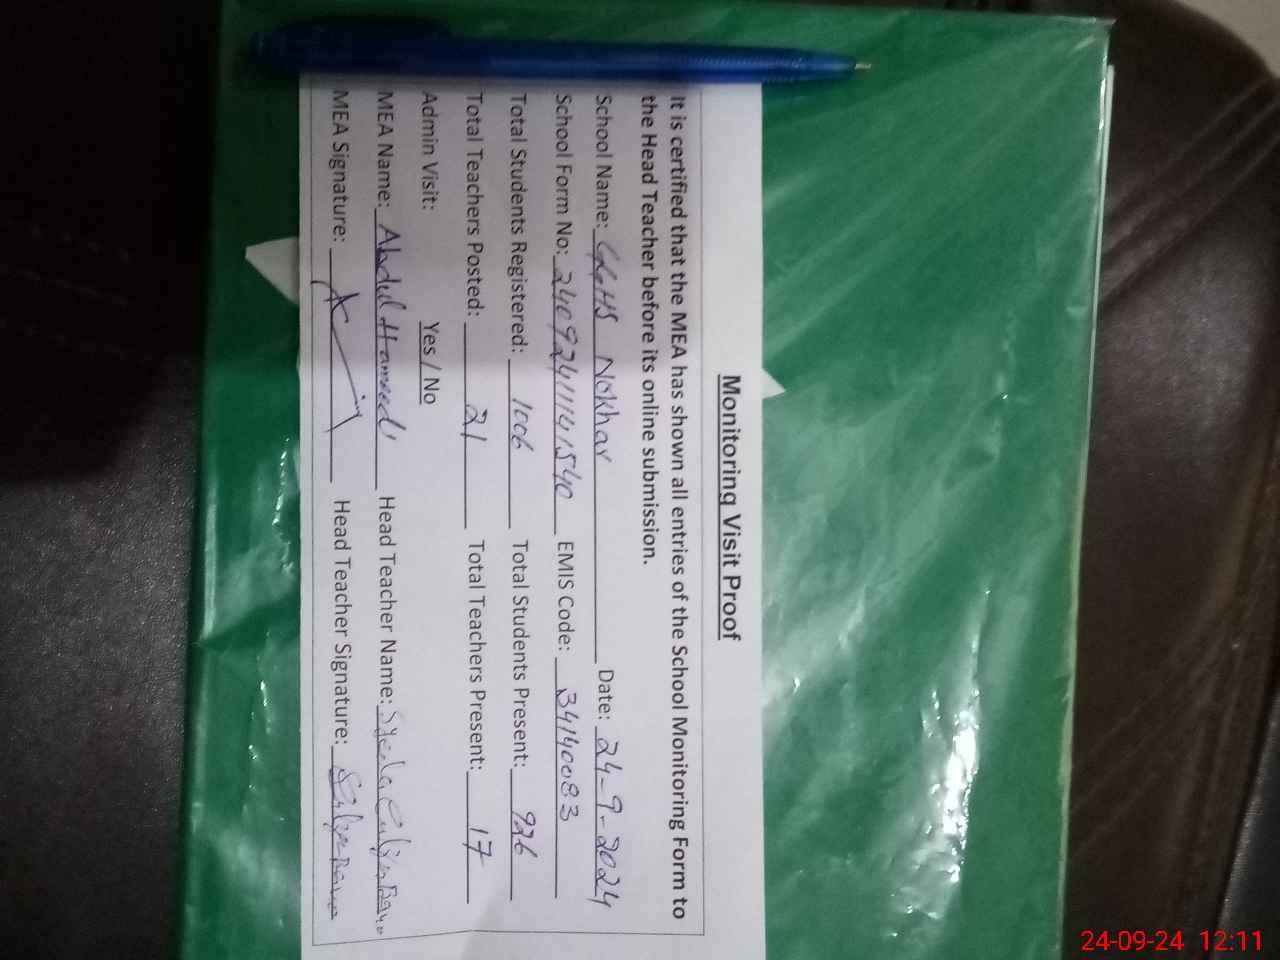 Monitoring Visit Proof
It is certified that the MEA has shown all entries of the School Monitoring Form to
the Head Teacher before its online submission.
School Name: GGHS Nokhar Date: 24-9-2024
School Form No: 24092411141540 EMIS Code: 34140083
Total Students Registered: 1006 Total Students Present: 926
Total Teachers Posted: 21 Total Teachers Present: 17
Admin Visit: Yes / No
MEA Name: Abdul Hameed Head Teacher Name: Syeda Bano
MEA Signature: Head Teacher Signature:
24-09-24 12:11